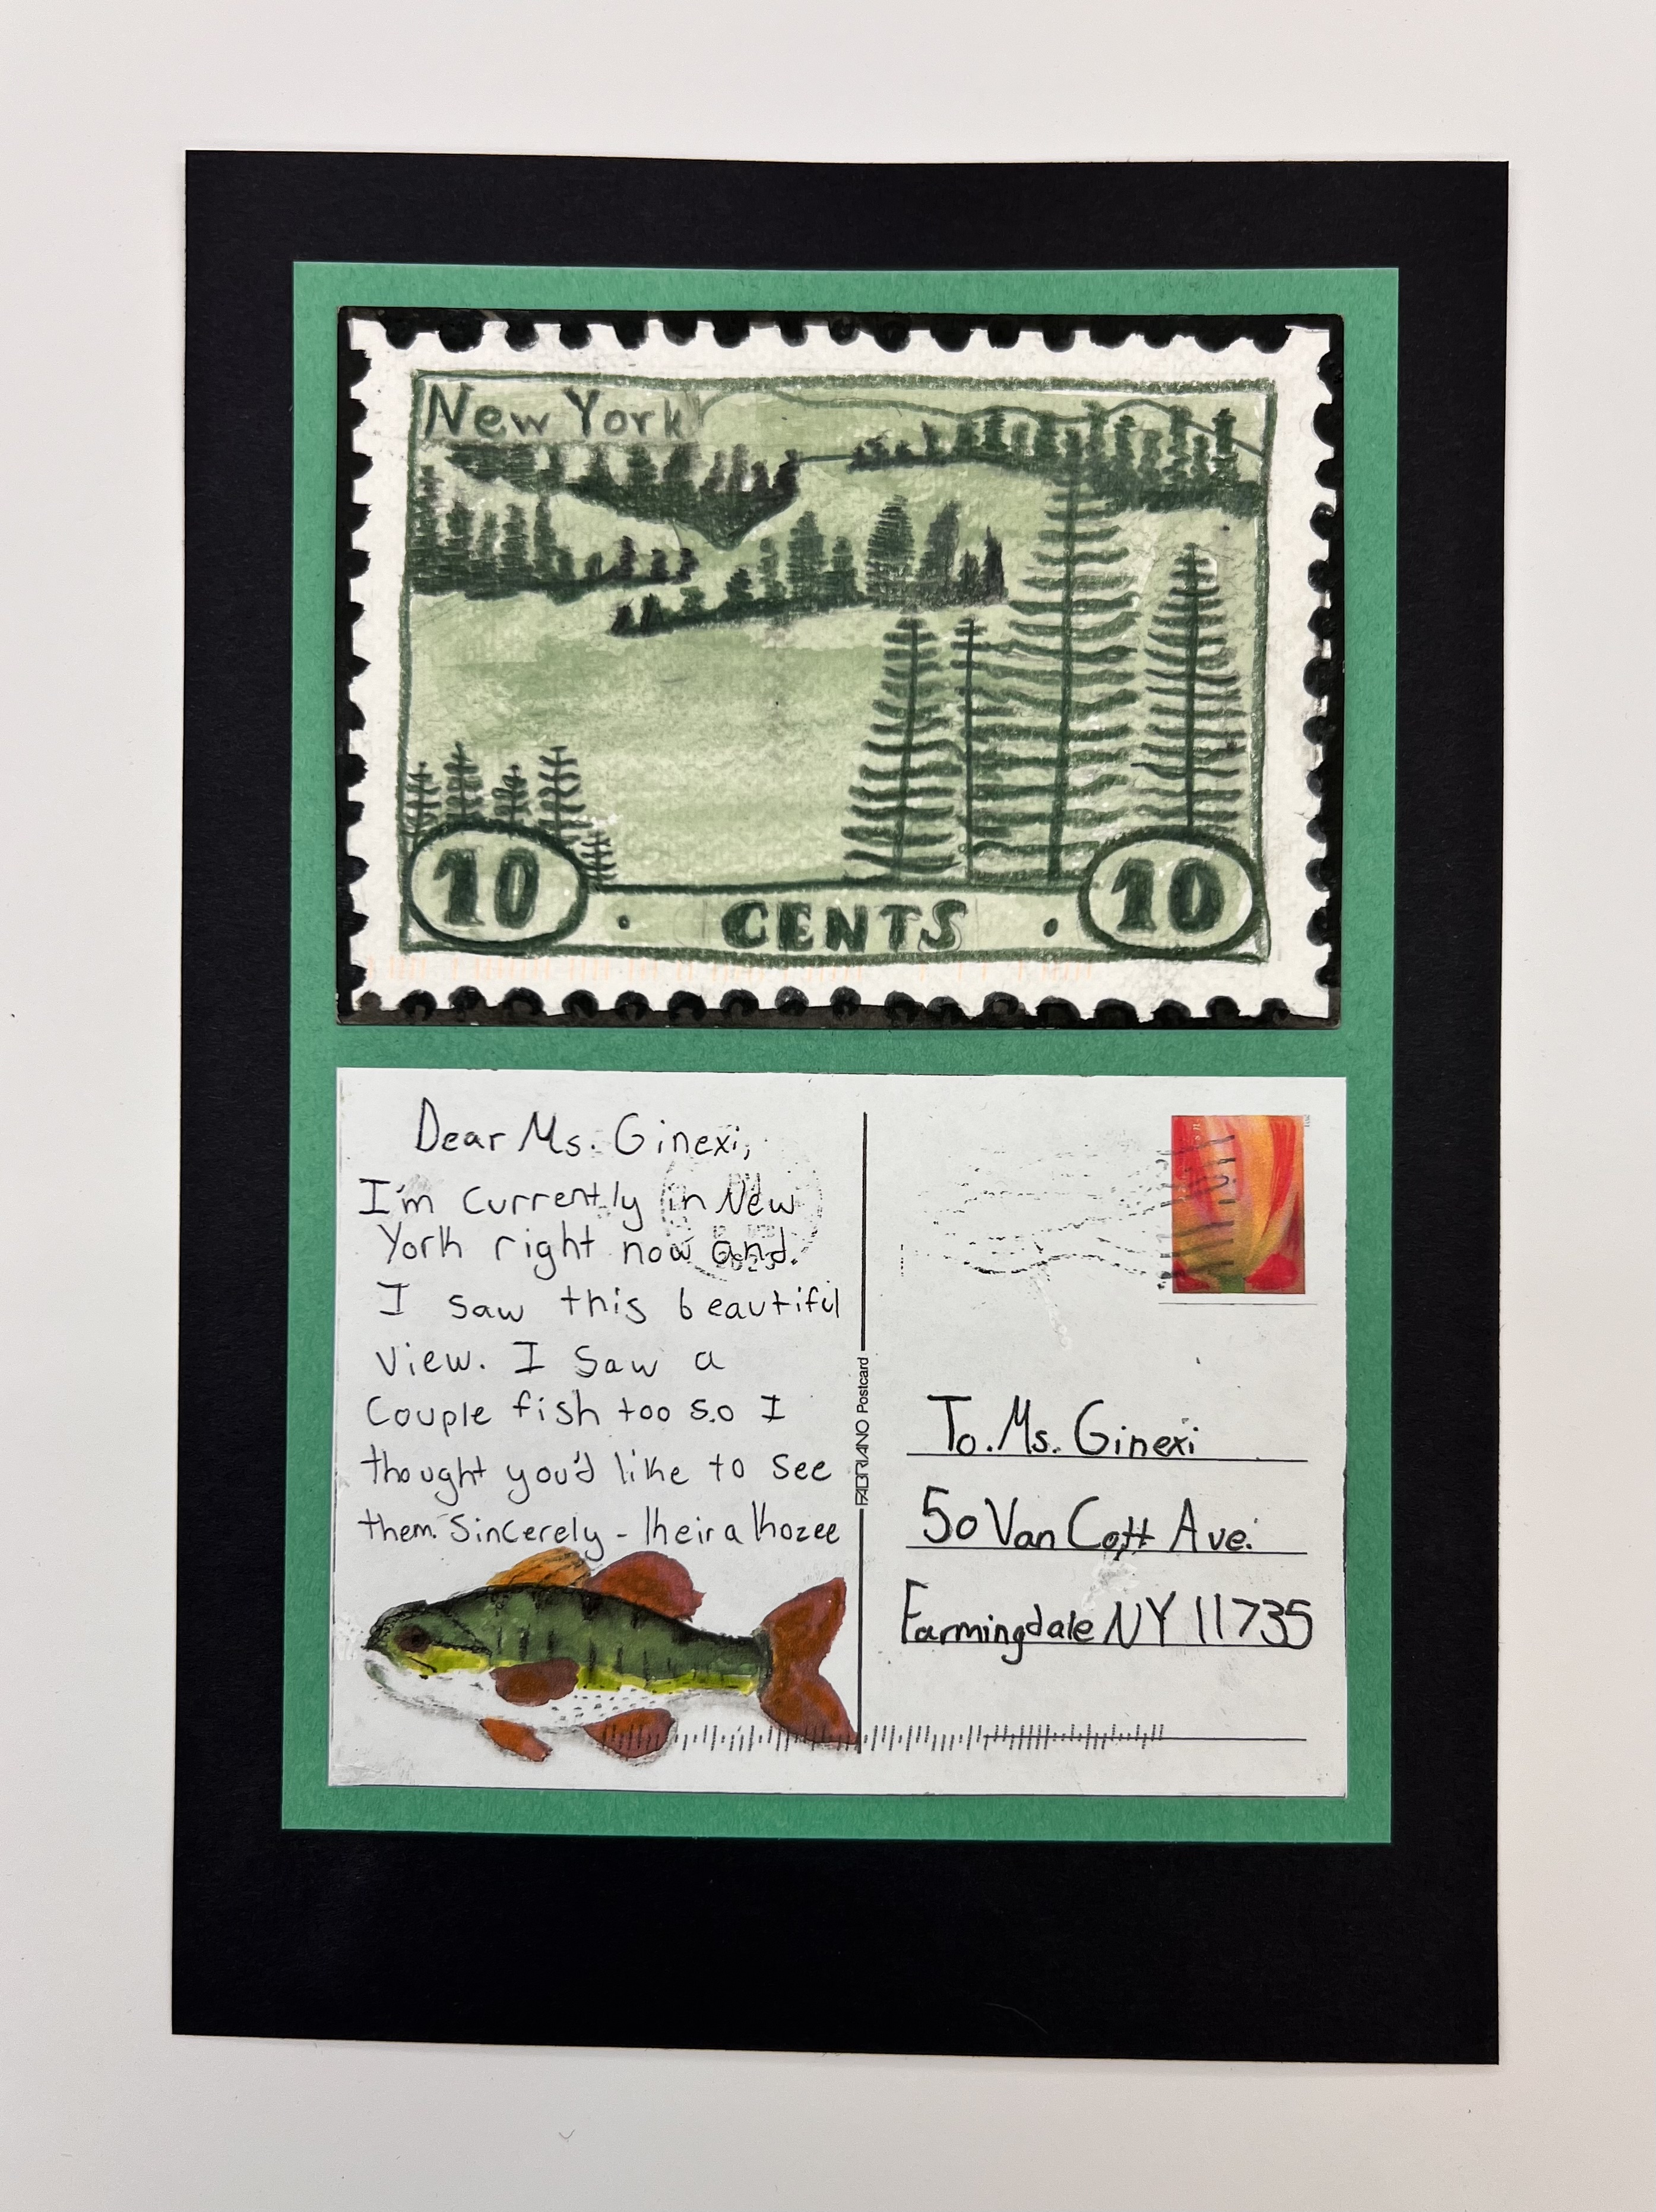 New York
10 · CENTS · 10
Dear Ms. Ginexi,
I'm currently in New
York right now and.
I saw this beautiful
view. I saw a
couple fish too so I
thought you'd like to see
them. Sincerely - Keira Kozee
FABRIANO Postcard
To. Ms. Ginexi
50 Van Cott Ave.
Farmingdale NY 11735